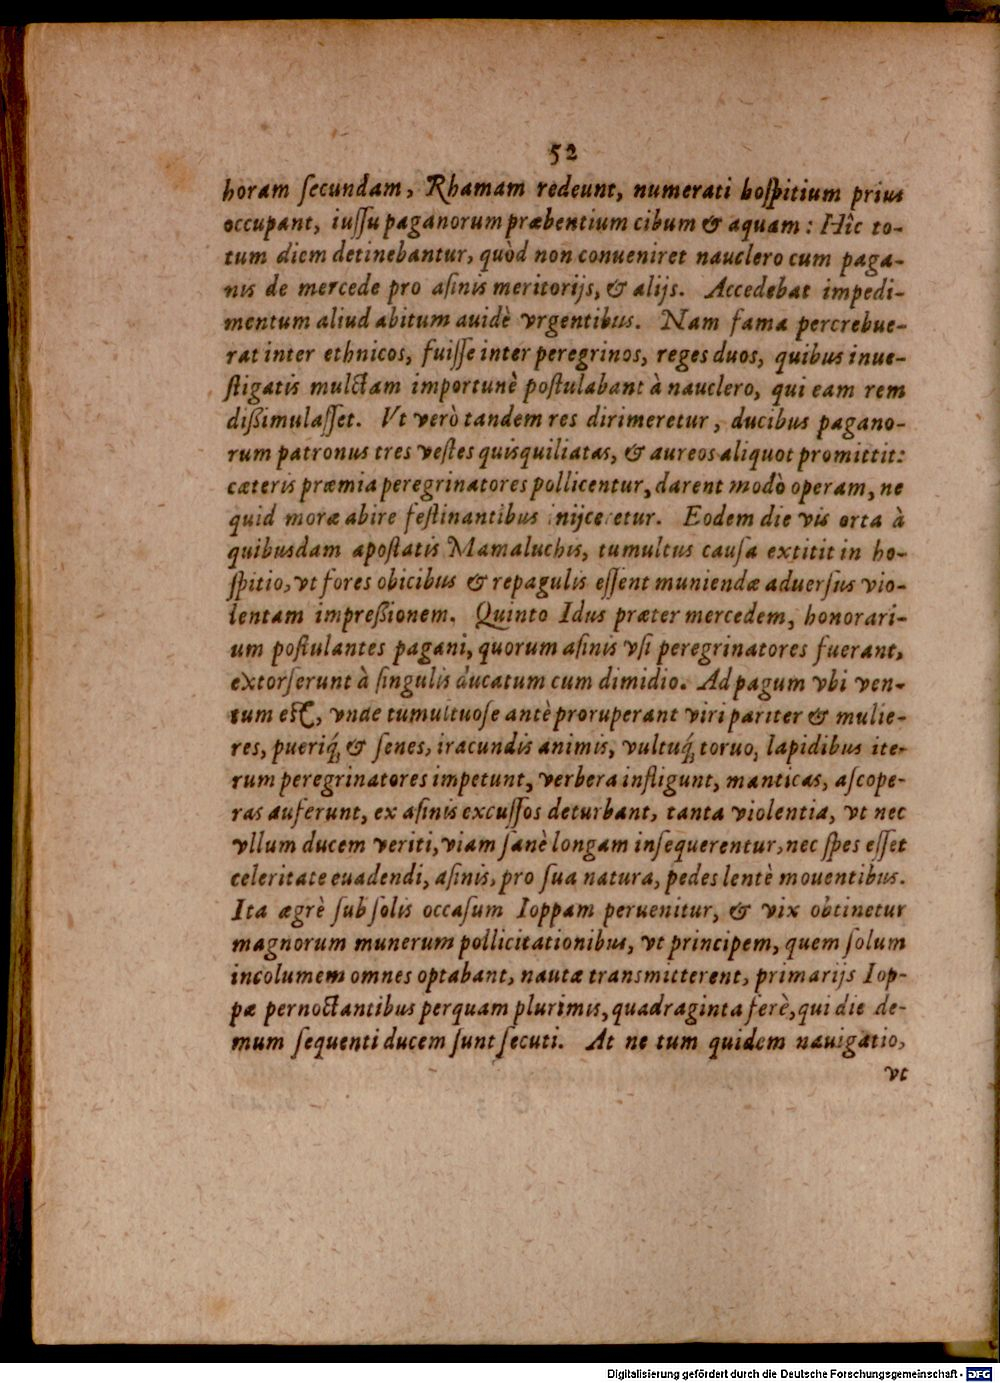 52
horam ſecundam, Rhamam redeunt, numerati hoſpitium prius
occupant, iuſſu paganorum præbentium cibum & aquam: Hîc to-
tum diem detinebantur, quòd non conueniret nauclero cum paga-
nis de mercede pro aſinis meritorijs, & alijs. Accedebat impedi-
mentum aliud abitum auidè vrgentibus. Nam fama percrebue-
rat inter ethnicos, fuiſſe inter peregrinos, reges duos, quibus inue-
ſtigatis mulctam importunè poſtulabant à nauclero, qui eam rem
dißimulaſſet. Vt verò tandem res dirimeretur, ducibus pagano-
rum patronus tres veſtes quisquiliatas, & aureos aliquot promittit:
cæteris præmia peregrinatores pollicentur, darent modò operam, ne
quid moræ abire feſtinantibus inijceretur. Eodem die vis orta à
quibusdam apoſtatis Mamaluchis, tumultus cauſa extitit in ho-
ſpitio, vt fores obicibus & repagulis eſſent muniendæ aduerſus vio-
lentam impreßionem. Quinto Idus præter mercedem, honorari-
um poſtulantes pagani, quorum aſinis vſi peregrinatores fuerant,
extorſerunt à ſingulis ducatum cum dimidio. Ad pagum vbi ven-
tum eſt, vnde tumultuoſe antè proruperant viri pariter & mulie-
res, pueriq́; & ſenes, iracundis animis, vultuq́; toruo, lapidibus ite-
rum peregrinatores impetunt, verbera infligunt, manticas, aſcope-
ras auferunt, ex aſinis excuſſos deturbant, tanta violentia, vt nec
vllum ducem veriti, viam ſanè longam inſequerentur, nec ſpes eſſet
celeritate euadendi, aſinis, pro ſua natura, pedes lentè mouentibus.
Ita ægrè ſub ſolis occaſum Ioppam peruenitur, & vix obtinetur
magnorum munerum pollicitationibus, vt principem, quem ſolum
incolumem omnes optabant, nautæ transmitterent, primarijs Iop-
pæ pernoctantibus perquam plurimis, quadraginta ferè, qui die de-
mum ſequenti ducem ſunt ſecuti. At ne tum quidem nauigatio,
vt
Digitalisierung gefördert durch die Deutsche Forschungsgemeinschaft - DFG